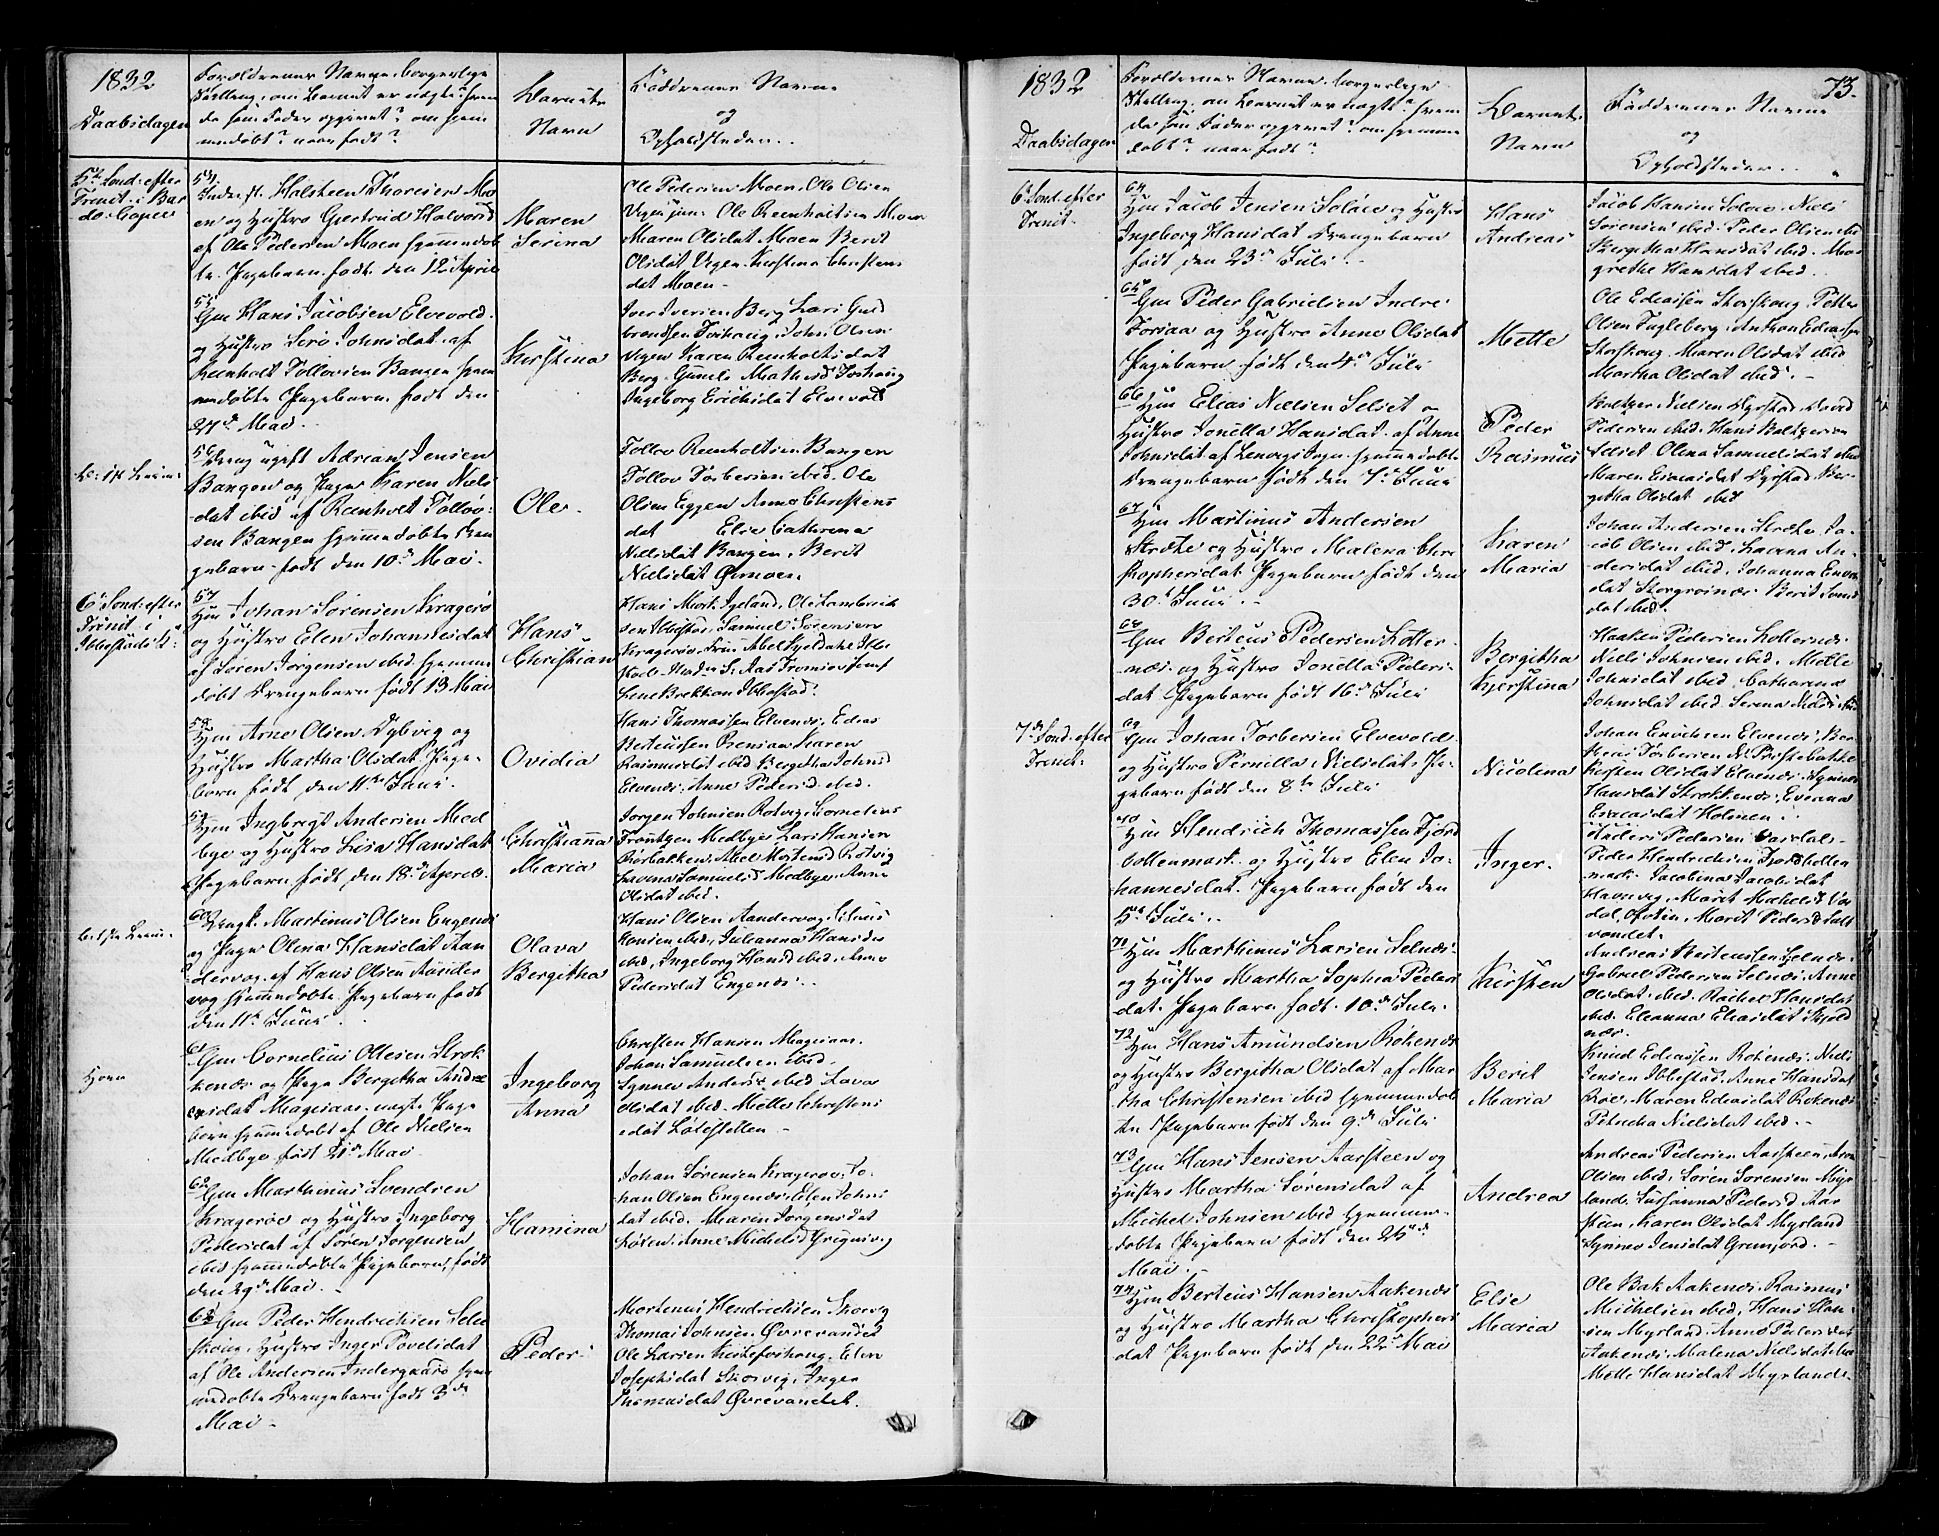 1832
Daabsdagen
Forældrenes Navne, borgerlige
Stilling, om Barnet er uægte? hvem
da som Fader opgivet? om hjem
medøbt? naar født?
Barnets
Navn
Faddrenes Navne
og
Opholdsteder
5te Sønd: efter
Trinit: i Bar
do Capel
54
Inderst. Halsteen Thoresen Mo
en og Hustro Gjertrud Halvorsd
af Ole Pedersen Moen hjemmedøb
te Pigebarn født den 12te April
Maren
Serina
Ole Pedersen Moen, Ole Olsen
Vegen jun: Ole Reenholtsen Moen
Maren Olsdat Moen Berit
Olsdat Vegen Kirstina Christens
dat Moen
55
Gm Hans Jacobsen Elvevold
og Hustro Johnsdat. af
Reenholt Tollovsen Bangen hjem
medøbte Pigebarn født den
27de Mai
Kirstina
Iver Iversen Berg Lars Gud
brandsen Foshoug, John Olsen
Vegen Karen Reenholtsdat
Berg Gunelo Mathisd Foshoug
Ingeborg Erichsdat Elvevold
56
Dreng ugift Adrian Jensen
Bangen og Pige Karen Niels
dat ibid af Reenholt Tollov
sen Bangen hjemmedøbte Dren
gebarn født den 10de Mai
Ole
Tollov Reenholtsen Bangen
Tollov Torbersen ibid. Ole
Olsen Eggen Anne Christens
dat Else Cathrena
Nielsdat Bangen, Berit
Nielsdat Øvmoen
6te Sønd: efter
Trinit: i
Ibbestads K:
57
Hm Johan Sørensen Kragerø
og Hustro Elen Johannesdat
af Søren Jørgensen ibid hjemme
døbt Drengebarn født 13 Mai
Hans
Christian
Hans Mort: Igeland, Ole Lambrich
sen Ibbestad, Samuel Sørensen
Kragerø
Lene Brekkon Ibbestad
58
Hm Arne Olsen Dybvig og
Hustro Martha Olsdat Pige
barn født den 11te Juni
Ovidia
Hans Thomassen Elvenes, Elias
Berteussen Rensaa Karen
Rasmusdat ibid Bergitha Johnsd
Elvenes, Anne Pedersd ibid.
59
Hm Ingbrigt Andersen Med
bye og Hustro Lisa Hansdat
Pigebarn født den 18de April
Christianna
Maria
Jørgen Johnsen Rotvig, Cornelius
Frantzen Medbye Lars Hansen
Rørbakken, Niel Mortensd Rotvig
Lavina Samuelsd Medbye Anne
Olsdat ibid.
60
Ungk. Martinus Olsen Engenes
og Pige Olena Hansdat Aan
dervog, af Hans Olsen Aander
vog hjemmedøbte Pigebarn født
den 11te Juni
Olava
Bergitha
Hans Olsen Aandervog, Elias
Hansen ibid, Julianna Hansdat
ibid, Ingeborg Hansd ibid, Anne
Pedersdat Engenes
61
Gm Cornelius Ollesen Strok
kenæs og Pige Bergitha Andre
asdat Magesaas, uægte Pige
barn hjemmedøbt af Ole Nielsen
Medbye født 21de Mai
Ingeborg
Anna
Christen Hansen Magesaas
Johan Samuelsen ibid
Synnev Andersd ibid Lava
Olsdat ibid Mette Christens
dat Løbestellen
62
Gm Marthinus Svendsen
Kragerøe og Hustro Ingeborg
Pedersdat af Søren Jørgensen
ibid hjemmedøbte Pigebarn, født
den 29de Mai
Hamina
Johan Sørensen Kragerøe, Jo
han Olsen Engenes, Elen Johns
dat ibid. Maren Jørgensdat
Løvlien, Anne Michelsd
63
Gm Peder Hendrichsen Sele
skoug, Hustro Inger Povelsdat
af Ole Andersen Indergaard hjem
medøbte Drengebarn født 3de
Mai
Peder
Mortenus Hendrichsen Skovig
Thomas Johnsen Øvrevandet
Ole Larsen Kirkefoshoug, Elen
Josephsdat Skovig, Inger
Thomasdat Øvrevandet.
1832
Daabsdagen
Forældrenes Navne, borgerlige
Stilling, om Barnet er uægte? hvem
da som Fader opgivet? om hjemme
døbt? naar født?
Barnets
Navn
Faddrenes Navne
og
Opholdsteder
73.
6te Sønd: efter
Trinit:
64
Hm Jacob Jensen Soløe og Hustro
Ingeborg Hansdat Drengebarn
født den 23de Juli
Hans
Andreas
Jacob Hansen Soløe, Niels
Sørensen ibid. Peder Olsen ibid
Bergitha Hansdat ibid. Mar
grethe Hansdat ibid.
65
Gm Peder Gabrielsen Indre
Forsaa og Hustro Anne Olsdat
Pigebarn født den 4de Juli
Mette
Ole Eliassen Storskoug, Petter
Olsen Fugleberg, Anthon Eliassen
Storskoug, Maren Olsdat ibid
Martha Olsdat ibid.
66
Hm Elias Nielsen Selset og
Hustro Jonella Hansdat af Anne
Johnsdat af Lenvigs Sogn hjemmedøbte
Drengebarn født den 7de Juni
Peder
Rasmus
Baltzer Nielsen Dyrstad, David
Pedersen ibid. Hans Baltzersen
Selset Olena Samuelsdat ibid
Maren Eliasdat Dyrstad Ber
githa Olsdat ibid
67
Hm Martinus Andersen
Stræte og Hustro Malena Chri
stophersdat. Pigebarn født den
30te Juni
Karen
Maria
Johan Andersen Stræte, Ja
cob Olsen ibid, Lavina An
dersdat ibid. Johanna Enevo
dat Storgroinæs Berit
dat ibid.
68
Gm Berteus Pedersen Lotter
næs og Hustro Jonella Peders
dat Pigebarn født 16de Juli
Bergitha
Kjerstina
Haaken Pedersen Lotternes
Niels Johnsen ibid. Mette
Johnsdat ibid Catharena
Johnsdat ibid. Serena Nilsd ibid
7de Sønd: efter
Trinit:
69
Gm Johan Torbersen Elvevold
og Hustro Pernilla Nielsdat Pi
gebarn født den 8de Juli
Nicolena
Johan Enichsen Elvenes, Bar
Kirsten Olsdat Elvenes
Hansdat Strokkenes, Everena
Eliasdat Holmen
70
Hm Hendrich Thomassen Fjord
bottenmark og Hustro Elen Jo
hannesdat. Pigebarn født den
5te Juli
Inger
Anders Pedersen Vasdal
Peder Hendrichsen Fjordbotten
mark. Jacobina Jacobsdat
Havnvig, Marit Michelsd Vas
dal, Ofoten, Marit Pedersd Salt
vandet.
71
Hm Marthinus Larsen Selnæs
og Hustro Martha Sophia Peders
dat. Pigebarn født 10de Juli
Kirsten
Andreas Berteussen Selnæs
Gabriel Pedersen Selnæs, Anne
Olsdat ibid. Rachel Hansdat
ibid. Eleanna Eliasdat Skjold
næs
72
Hm Hans Amundsen Rokenæs
og Hustro Bergitha Olsdat af Mar
tha Christensen ibid hjemmedøb
te Pigebarn født den 9de Juli
Berit
Maria
Knud Eliassen Rokenæs, Niels
Jensen Ibbestad, Anne Hansdat
Roe, Maren Eliasdat Rokenæs
Petricha Nielsdat ibid.
73
Gm Hans Jensen Aarsteen og
Hustro Martha Sørensdat af
Michel Johnsen ibid hjemme
døbte Pigebarn født den 25de
Mai
Andrea
Andreas Pedersen Aarsteen, Aron
Olsen ibid, Søren Sørensen Myr
land, Susanna Pedersd Aar
steen, Karen Olsdat Myrland
Synnev Jensdat Grønfjord.
74
Hm Berteus Hansen Aakenes
og Hustro Martha Christophers
dat Pigebarn født den 22de Mai
Else
Maria
Ole Bak Aakenes, Rasmus
Michelsen ibid, Hans Han
sen Myrland, Anne Pedersdat
Aakenes, Malena Nielsdat ibid
Mette Hansdat Myrland.